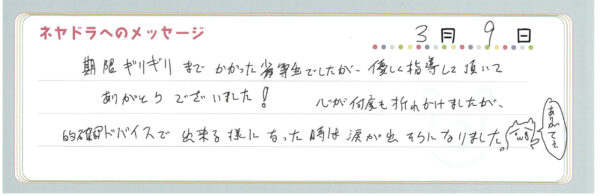 ネヤドラへのメッセージ
3月9日
期限ギリギリまでかかった劣等生でしたが、優しく指導して頂いて
ありがとうございました! 心が何度も折れかけましたが、
的確アドバイスで出来る様になった時は涙が出そうになりました。
ありがてぇ